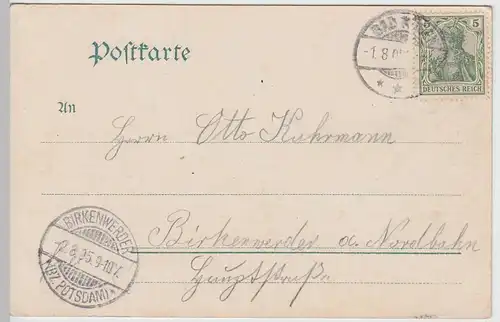 Postkarte
5
DEUTSCHES REICH
BAD
-1.8.0
An
Herrn Otto Kuhrmann
BIRKENWERDER
12.8.05.9-10V.
(BZ. POTSDAM)
Birkenwerder a. Nordbahn
Hauptstraße